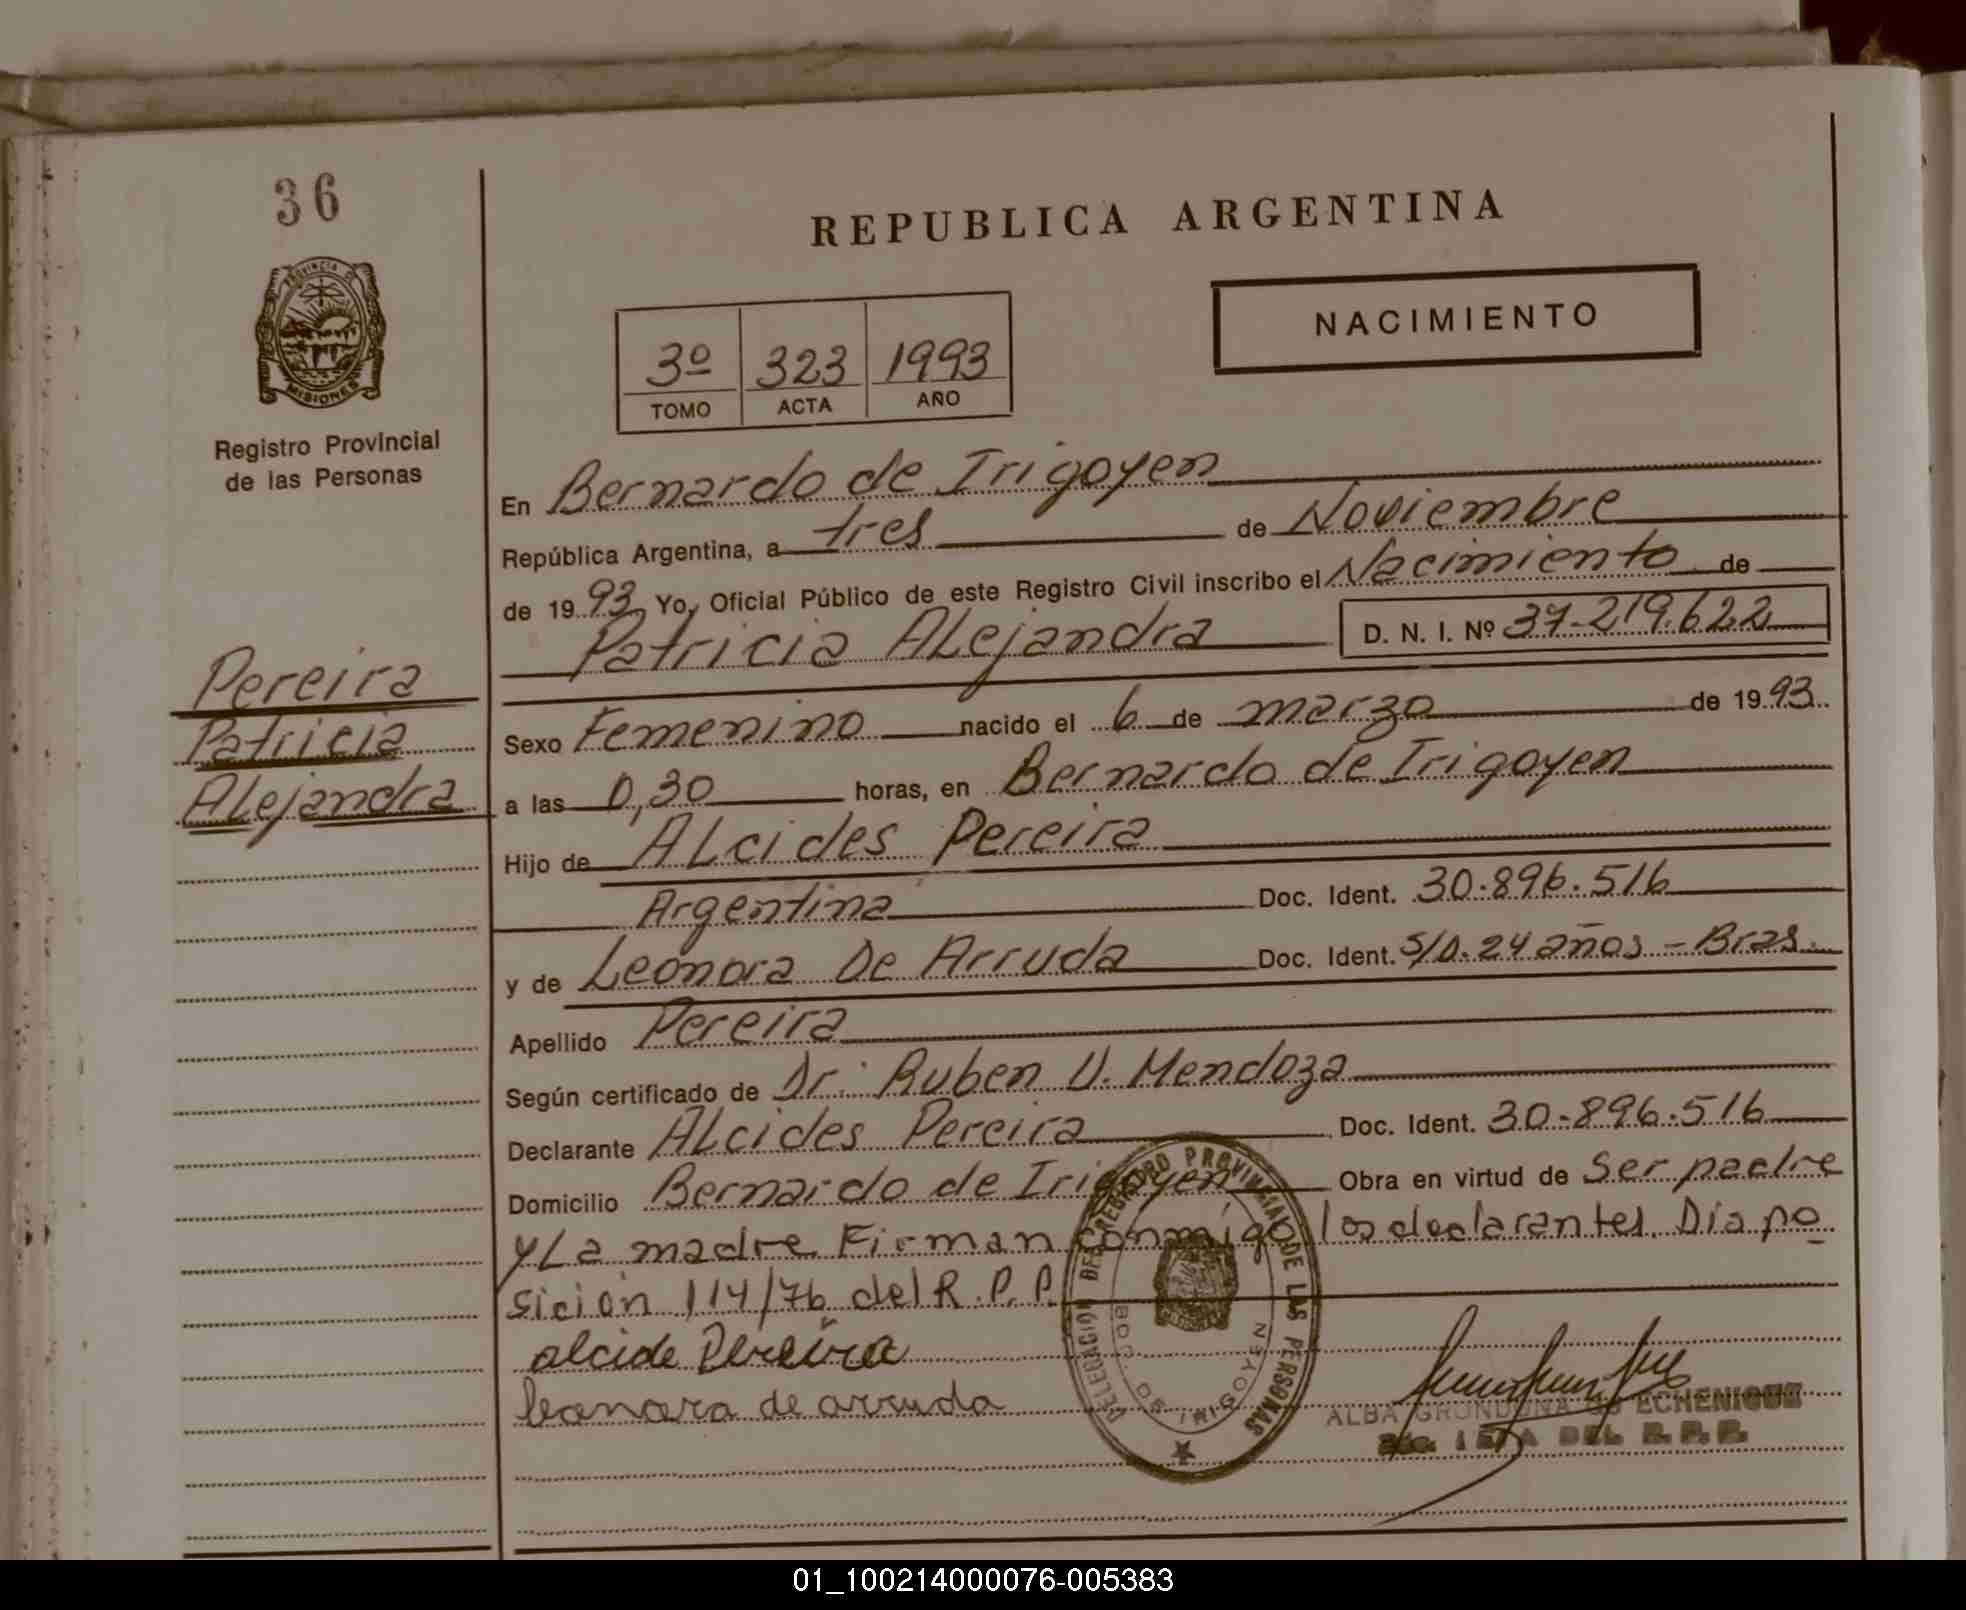 36
REPUBLICA ARGENTINA
PROVINCIA DE
MISIONES
Registro Provincial
de las Personas
NACIMIENTO
3º 323 1993
TOMO ACTA AÑO
En Bernardo de Irigoyen
República Argentina, a tres de Noviembre
de 1993 Yo, Oficial Público de este Registro Civil inscribo el Nacimiento de
Patricia Alejandra D. N. I. Nº 37.219.622
Pereira
Patricia
Alejandra
Sexo Femenino nacido el 6 de marzo de 1993
a las 0,30 horas, en Bernardo de Irigoyen
Hijo de Alcides Pereira
Argentina Doc. Ident. 30.896.516
y de Leonora De Arruda Doc. Ident. S/D. 24 años - Bras.
Apellido Pereira
Según certificado de Dr. Ruben D. Mendoza
Declarante Alcides Pereira Doc. Ident. 30-896.516
Domicilio Bernardo de Irigoyen Obra en virtud de Ser padre
y La madre Firman conmigo los declarantes. Dispo
sición 114/76 del R.P.P.
alcide Pereira
leonora de arruda
DELEGACION DEL REGISTRO PROVINCIAL DE LAS PERSONAS
BDO. DE IRIGOYEN
ALBA GRONDONA DE ECHENIQUE
DEL R.P.P.
01_100214000076-005383